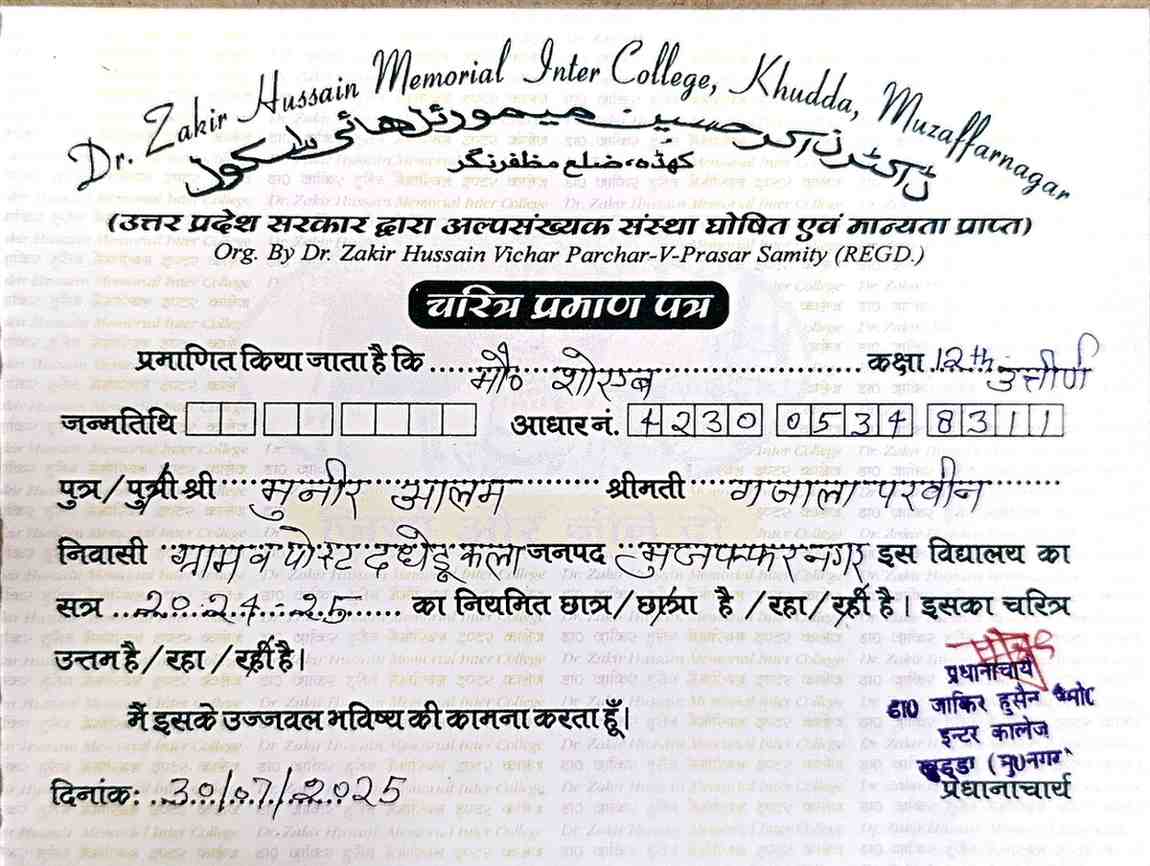 Dr. Zakir Hussain Memorial Inter College, Khudda, Muzaffarnagar
ڈاکٹر ذاکر حسین میموریل ہائی سکول
کھڈہ، ضلع مظفر نگر
(उत्तर प्रदेश सरकार द्वारा अल्पसंख्यक संस्था घोषित एवं मान्यता प्राप्त)
Org. By Dr. Zakir Hussain Vichar Parchar-V-Prasar Samity (REGD.)
चरित्र प्रमाण पत्र
प्रमाणित किया जाता है कि मौ० शोएब कक्षा 12th उत्तीर्ण
जन्मतिथि आधार नं. 4230 0534 8311
पुत्र/पुत्री श्री मुनीर आलम श्रीमती गजाला परवीन
निवासी ग्राम व पोस्ट दधेडू कला जनपद मुजफ्फरनगर इस विद्यालय का
सत्र 2024-25 का नियमित छात्र/छात्रा है /रहा/रही है। इसका चरित्र
उत्तम है/रहा/रही है।
मैं इसके उज्जवल भविष्य की कामना करता हूँ।
प्रधानाचार्य
डा0 जाकिर हुसैन मैमो
इन्टर कालेज
खुड्डा (मु0नगर)
दिनांक: 30/07/2025 प्रधानाचार्य